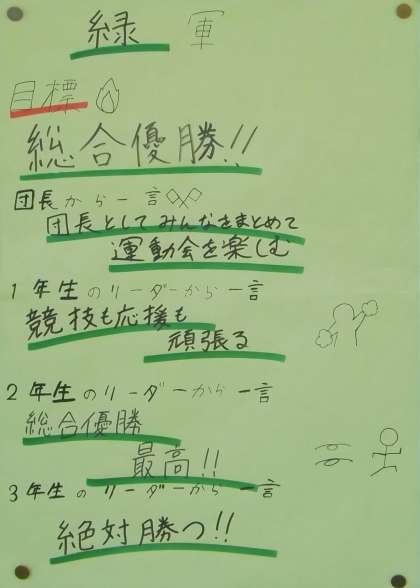 緑軍
目標
総合優勝!!
団長から一言
団長としてみんなをまとめて
運動会を楽しむ
1年生のリーダーから一言
競技も応援も
頑張る
2年生のリーダーから一言
総合優勝
最高!!
3年生のリーダーから一言
絶対勝つ!!